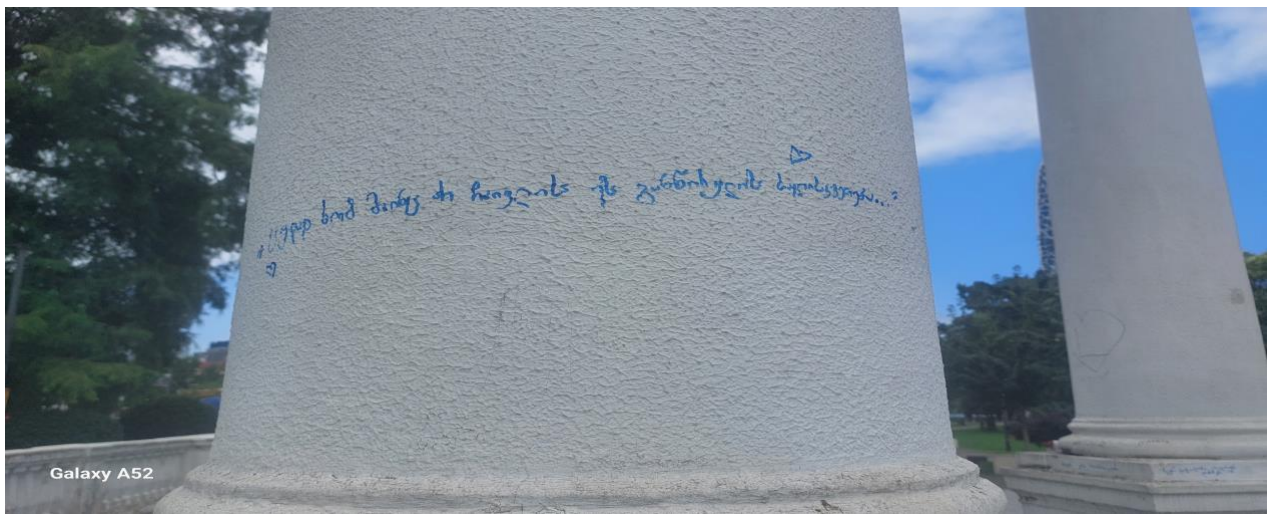 „ცუდად ხომ მაინც არ ჩაივლის ეს განწირულის სულისკვეთება..."
Galaxy A52